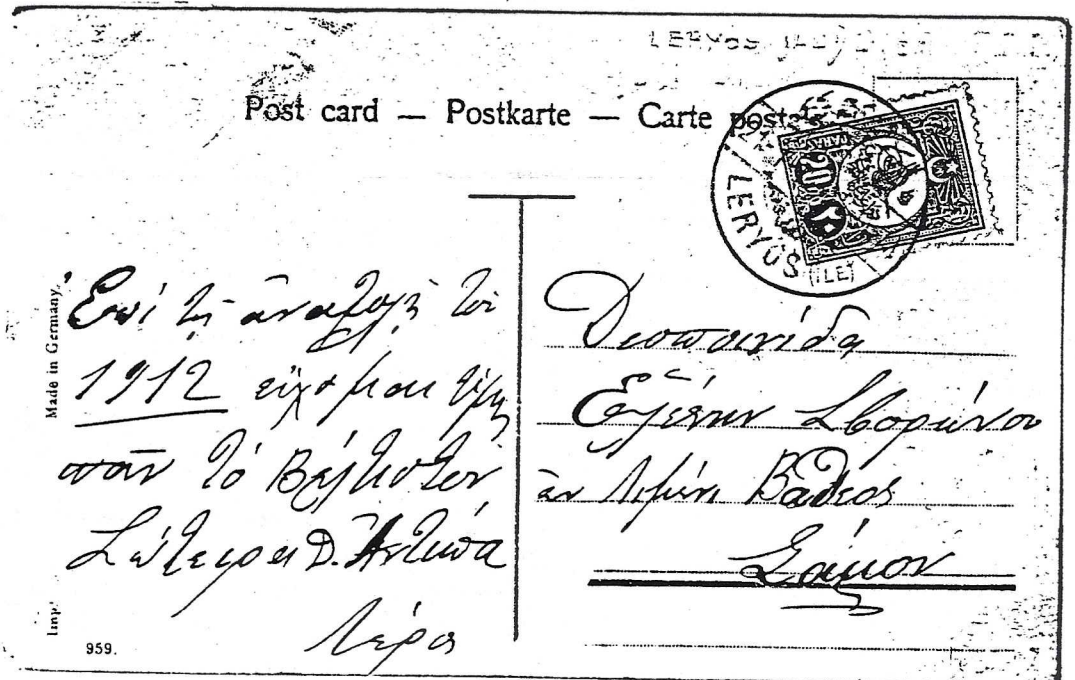 LERYOS
Post card — Postkarte — Carte postale
20
٢٠
LERYOS
(ILE)
Made in Germany.
Ἐπὶ τῇ ἀνατολῇ τοῦ
1912 εὔχομαι ὑμῖν
πᾶν τὸ Βέλτιστον
Σώτειρα Δ. Ἀντίπα
Λέρος
Imp.
959.
Δεσποινίδα
Ἑλένην Σβορώνου
ἐν Λιμένι Βαθέος
Σάμον